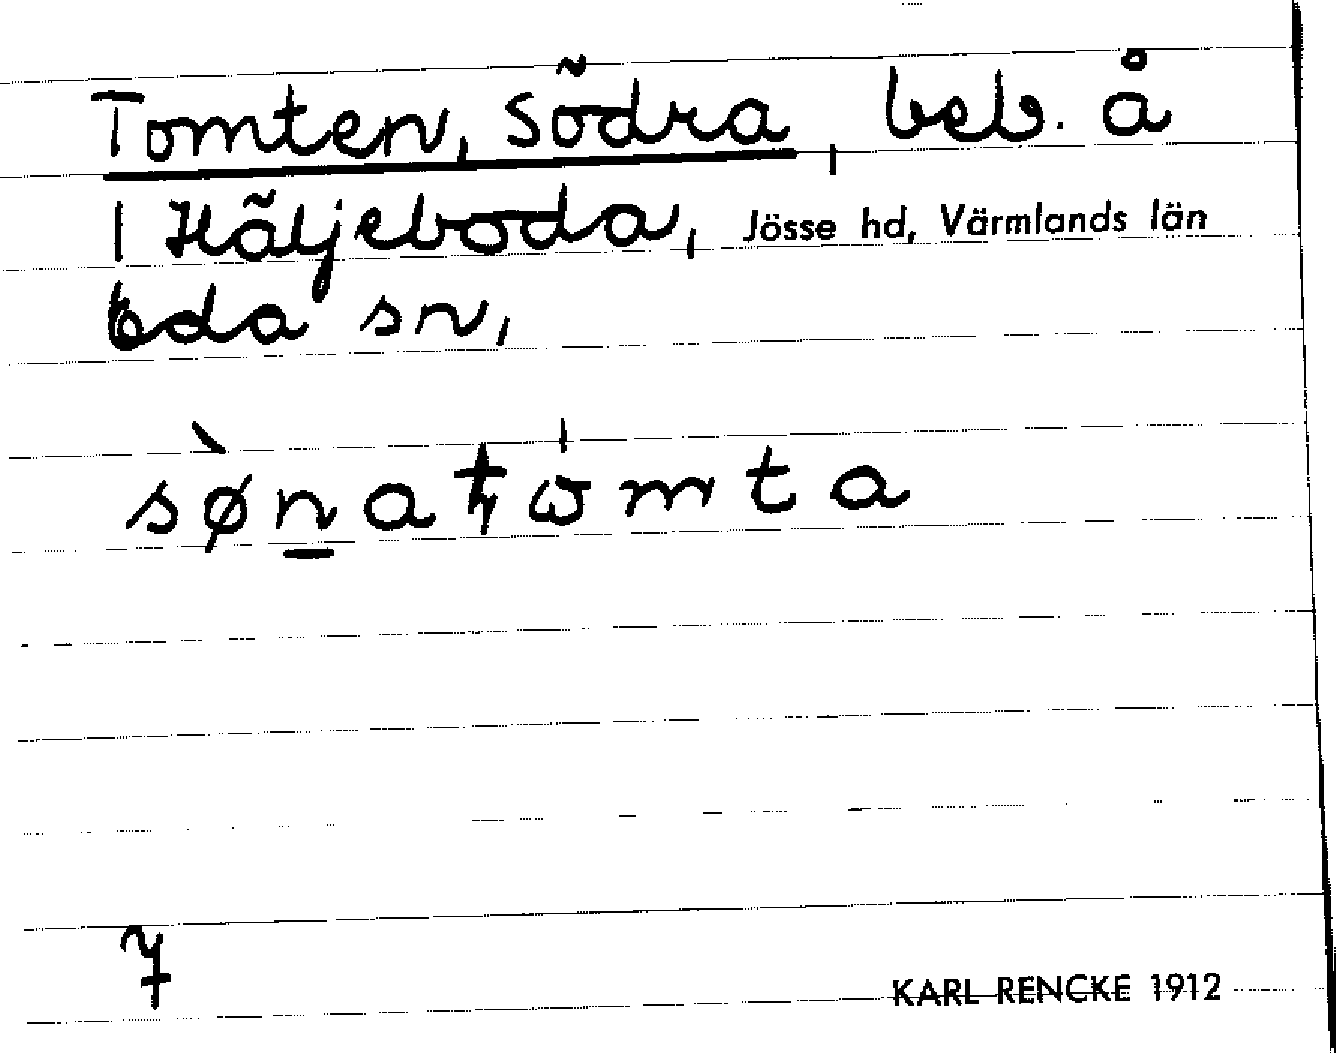 Tomten, Södra, beb. å
1 Häljeboda, Jösse hd, Värmlands län
Eda sn,
sø̀na tω̍mta
7
KARL RENCKE 1912